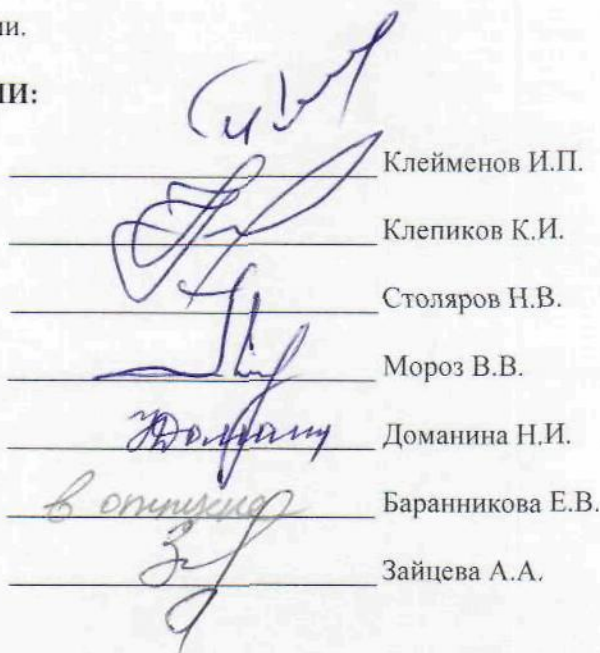 ии.
ИИ:
Клейменов И.П.
Клепиков К.И.
Столяров Н.В.
Мороз В.В.
Доманина Н.И.
в отпуске Баранникова Е.В.
Зайцева А.А.